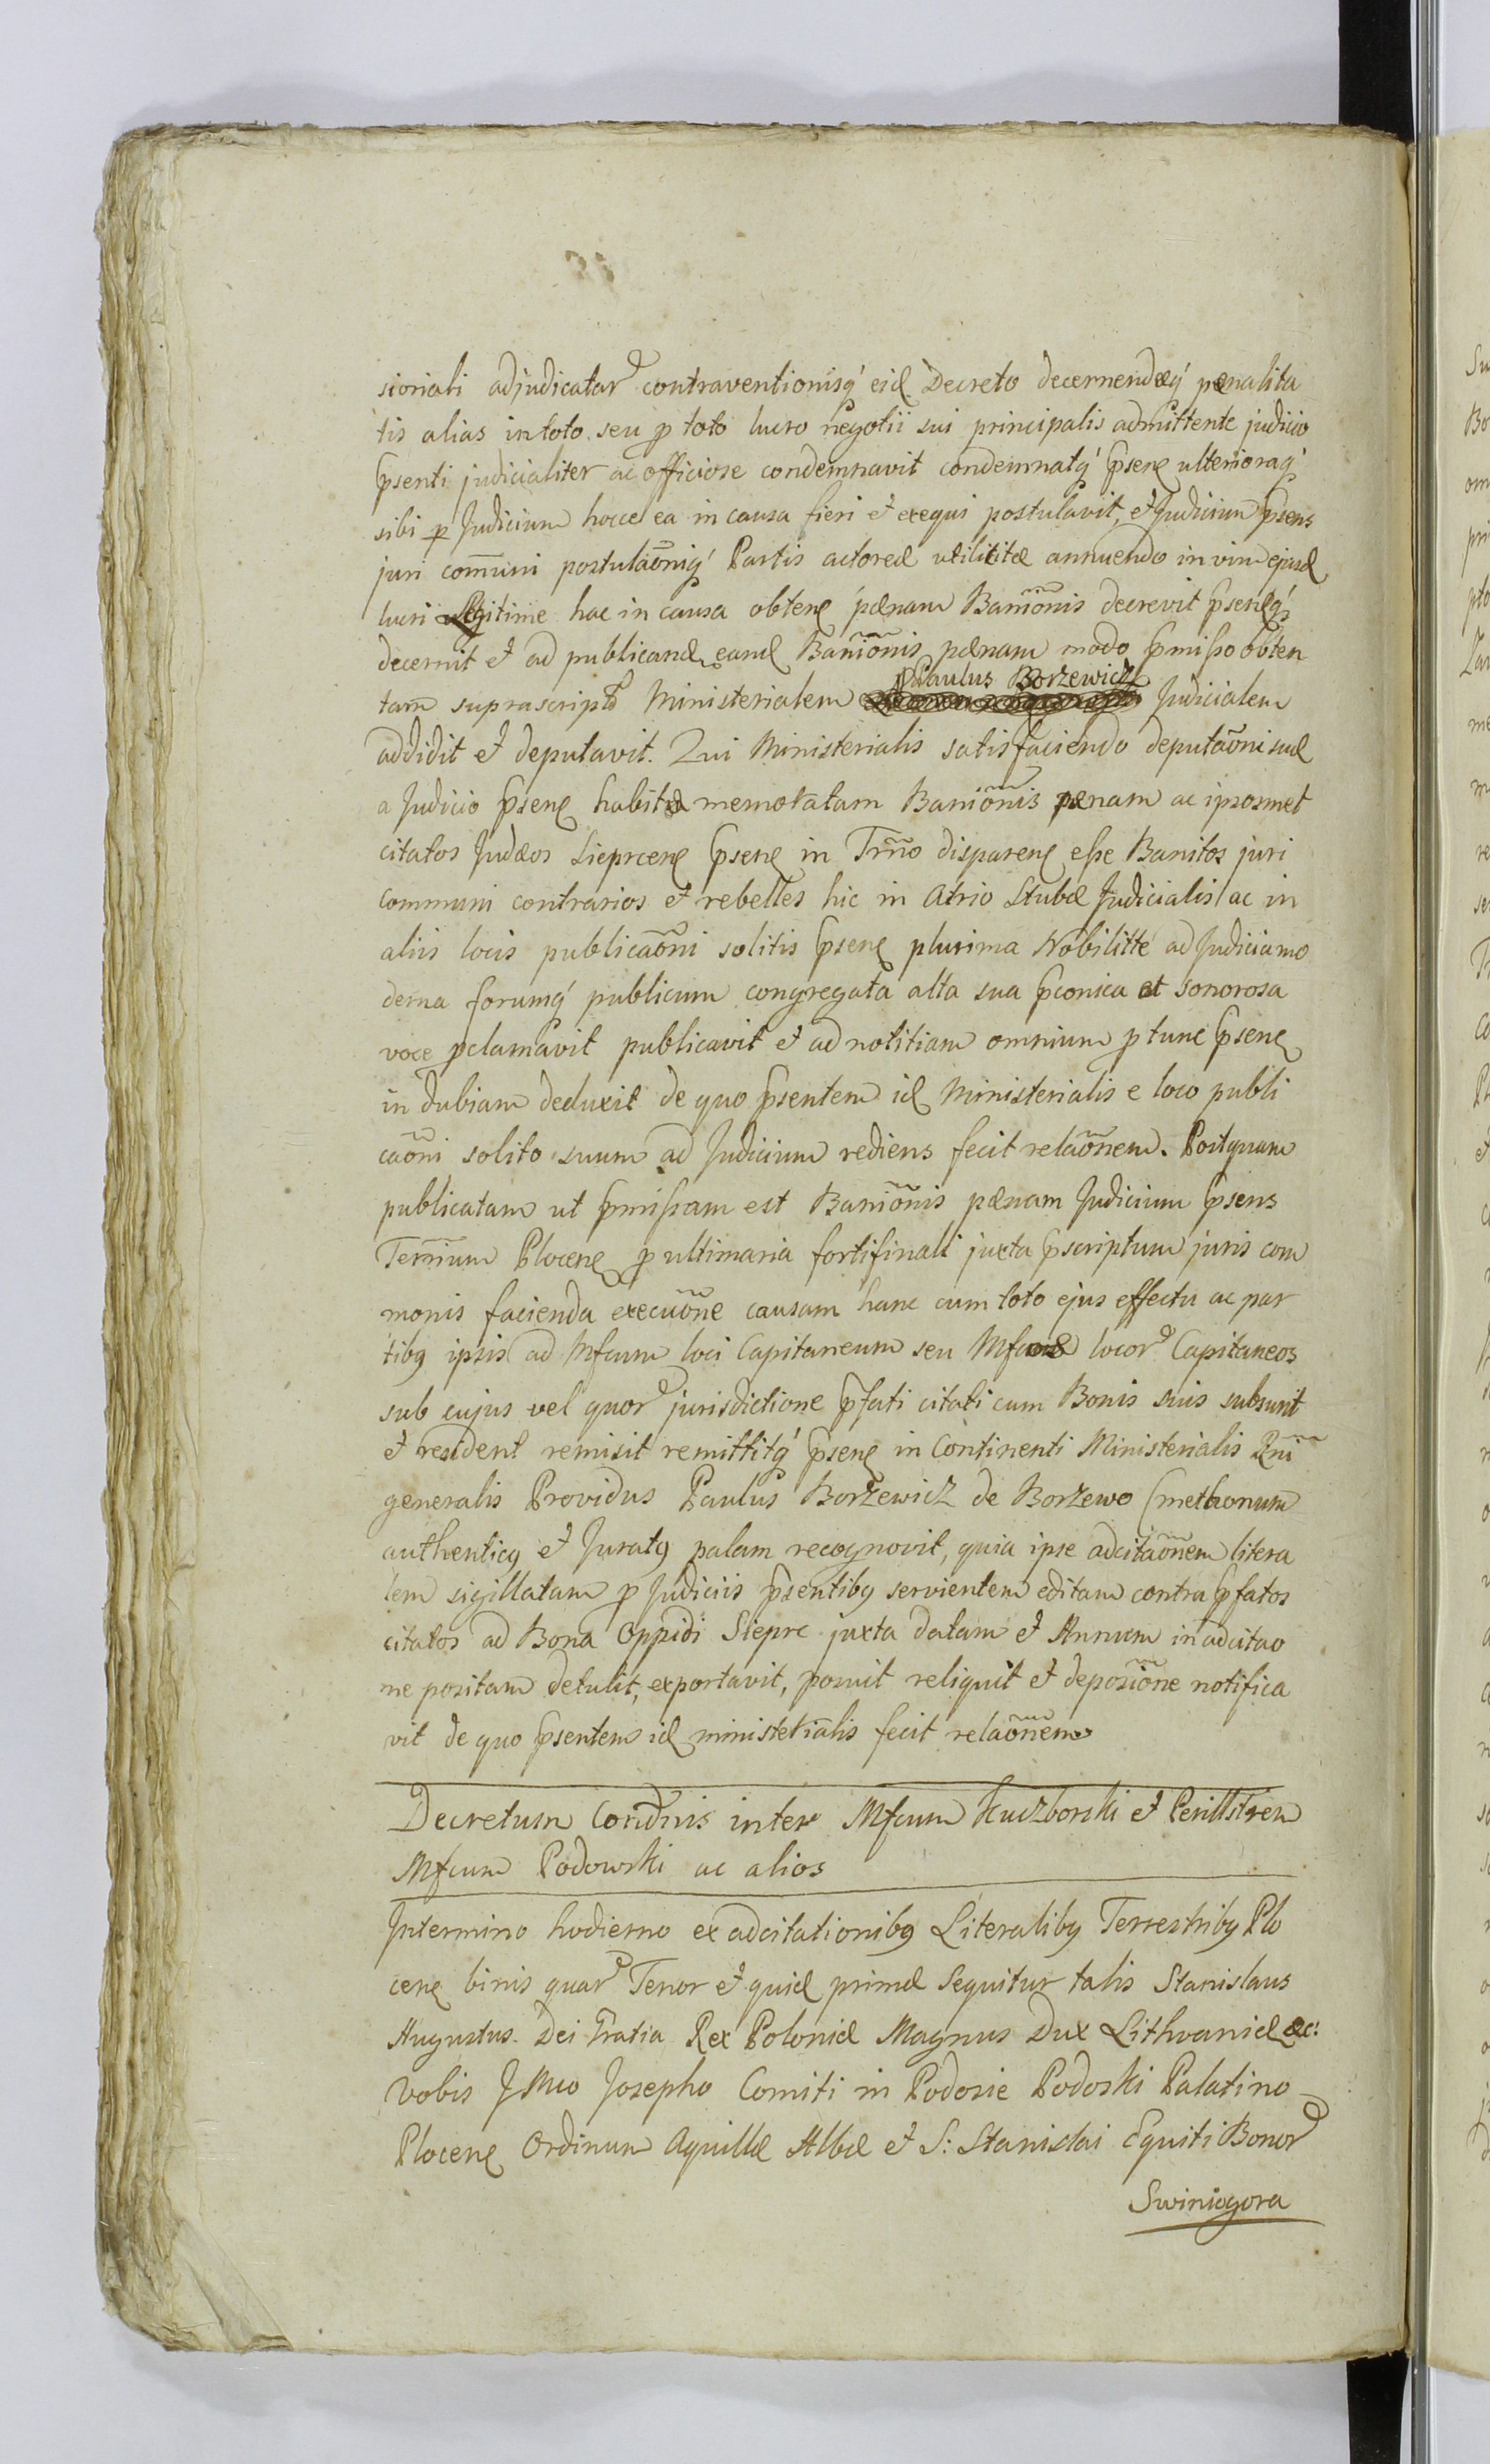 sioriali adjudicatar contraventionisq́ eid Decreto decernendæq́ pænalita
tis alias in toto seu p toto lucro negotii sui principalis admittente judicio
psenti judicialiter ac officiose condemnavit condemnatq́ psene ulterioraq́
sibi p Judicium hocce ea in causa fieri et exequi postulavit, et Judicium psens
juri com̃uni postulaõniq́ Partis actoreæ utilititæ annuendo in vim ejusd
lucri legitime hac in causa obtene pænam Baniõnis decrevit pseneq́
decernit et ad publicand eand Baniõnis pænam modo pmisso obten
Paulus Borzewicz
tam suprascript Ministerialem Judicialem
addidit et deputavit. Qui Ministerialis satisfaciendo deputaõni suæ
a Judicio psene habitæ memoratam Baniõnis pænam ac ipsosmet
citatos Judæos Sieprcene psene in Trño disparene esse Banitos juri
communi contrarios et rebelles hic in Atrio Stubæ Judicialis ac in
aliis locis publicaõni solitis psene plurima Nobilitte ad Judicia mo
derna forumq́ publicum congregata alta sua pconica et sonorosa
voce pclamavit publicavit et ad notitiam omnium p tunc psene
in dubiam deduxit de quo psentem id Ministerialis e loco publi
caõni solito suum ad Judicium rediens fecit relaõnem. Postquam
publicatam ut pmissam est Baniõnis pænam Judicium psens
Terrium Plocene p ultimaria fortifinali juxta pscriptum juris com
monis facienda execuõne causam hanc cum toto ejus effectu ac par
tibq ipsis ad Mfcum loci Capitaneum seu Mfcos locor Capitaneos
sub cujus vel quor jurisdictione pfati citati cum Bonis suis subsunt
et resident remisit remittitq́ psene in Continenti Ministerialis Rni
generalis Providus Paulus Borzewicz de Borzewo Cmethonum
authenticq et Juratq palam recognovit, quia ipse adcitaõnem litera
lem sigillatam p Judiciis psentibq servientem editam contra pfatos
citatos ad Bona Oppidi Sieprc juxta datam et Annum in adcitao
ne positam detulit, exportavit, posuit reliquit et deposiõne notifica
vit de quo psentem id ministerialis fecit relaõnem
Decretum Condnis inter Mfcum Kuczborski et Perillstrem
Mfcum Podowski ac alios
In termino hodierno ex adcitationibq Literalibq Terrestribq Plo
cene binis quar Tenor et quid primæ Sequitur talis Stanislaus
Augustus Dei Gratia Rex Poloniæ Magnus Dux Lithvaniæ &c:
Vobis J Mco Josepho Comiti in Podosie Podoski Palatino
Plocene Ordinum Aquillæ Albæ et S: Stanislai Equiti Bonor
Swiniogora